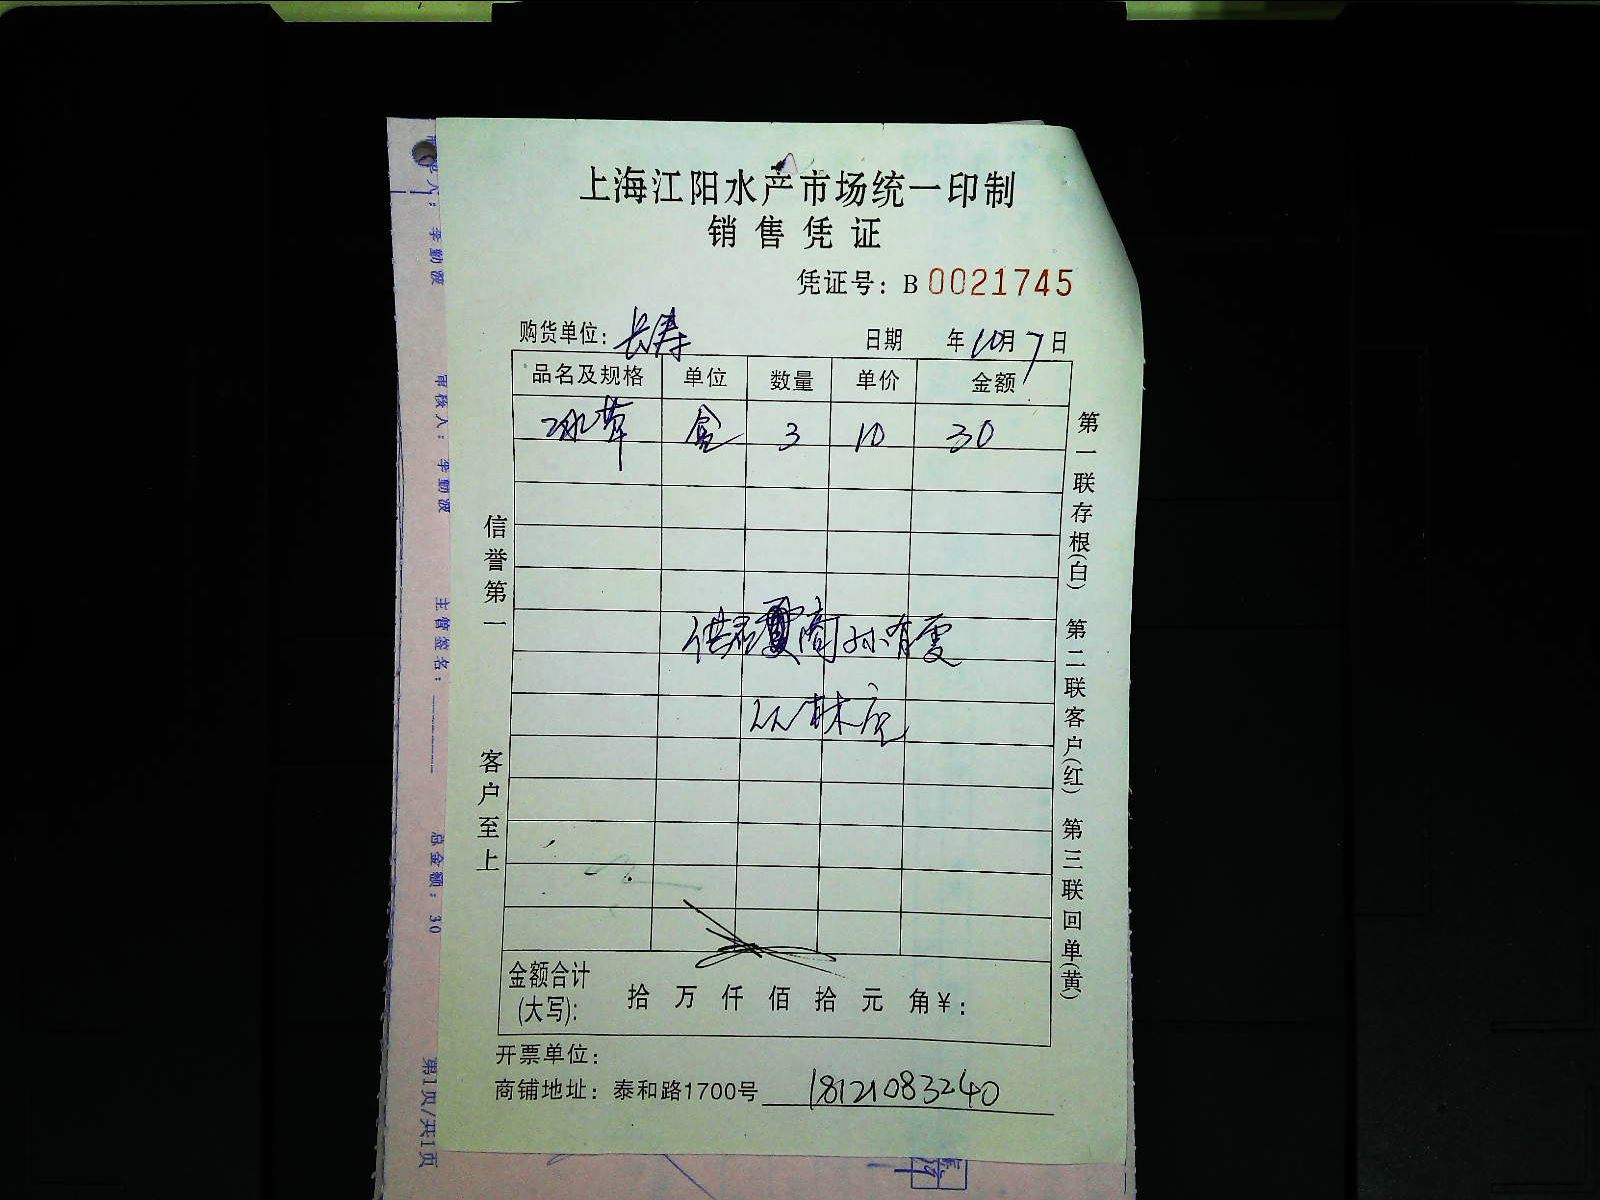 上海江阳水产市场统一印制
销售凭证
凭证号：B 0021745
购货单位：长寿 日期 年10月7日
品名及规格 单位 数量 单价 金额
冰草 盒 3 10 30
信誉第一
客户至上
第一联存根(白) 第二联客户(红) 第三联回单(黄)
金额合计
(大写)： 拾 万 仟 佰 拾 元 角 ¥：
开票单位：
商铺地址：泰和路1700号 18121083240
李勤波
审核人：李勤波
主管签名：
总金额：30
第1页/共1页